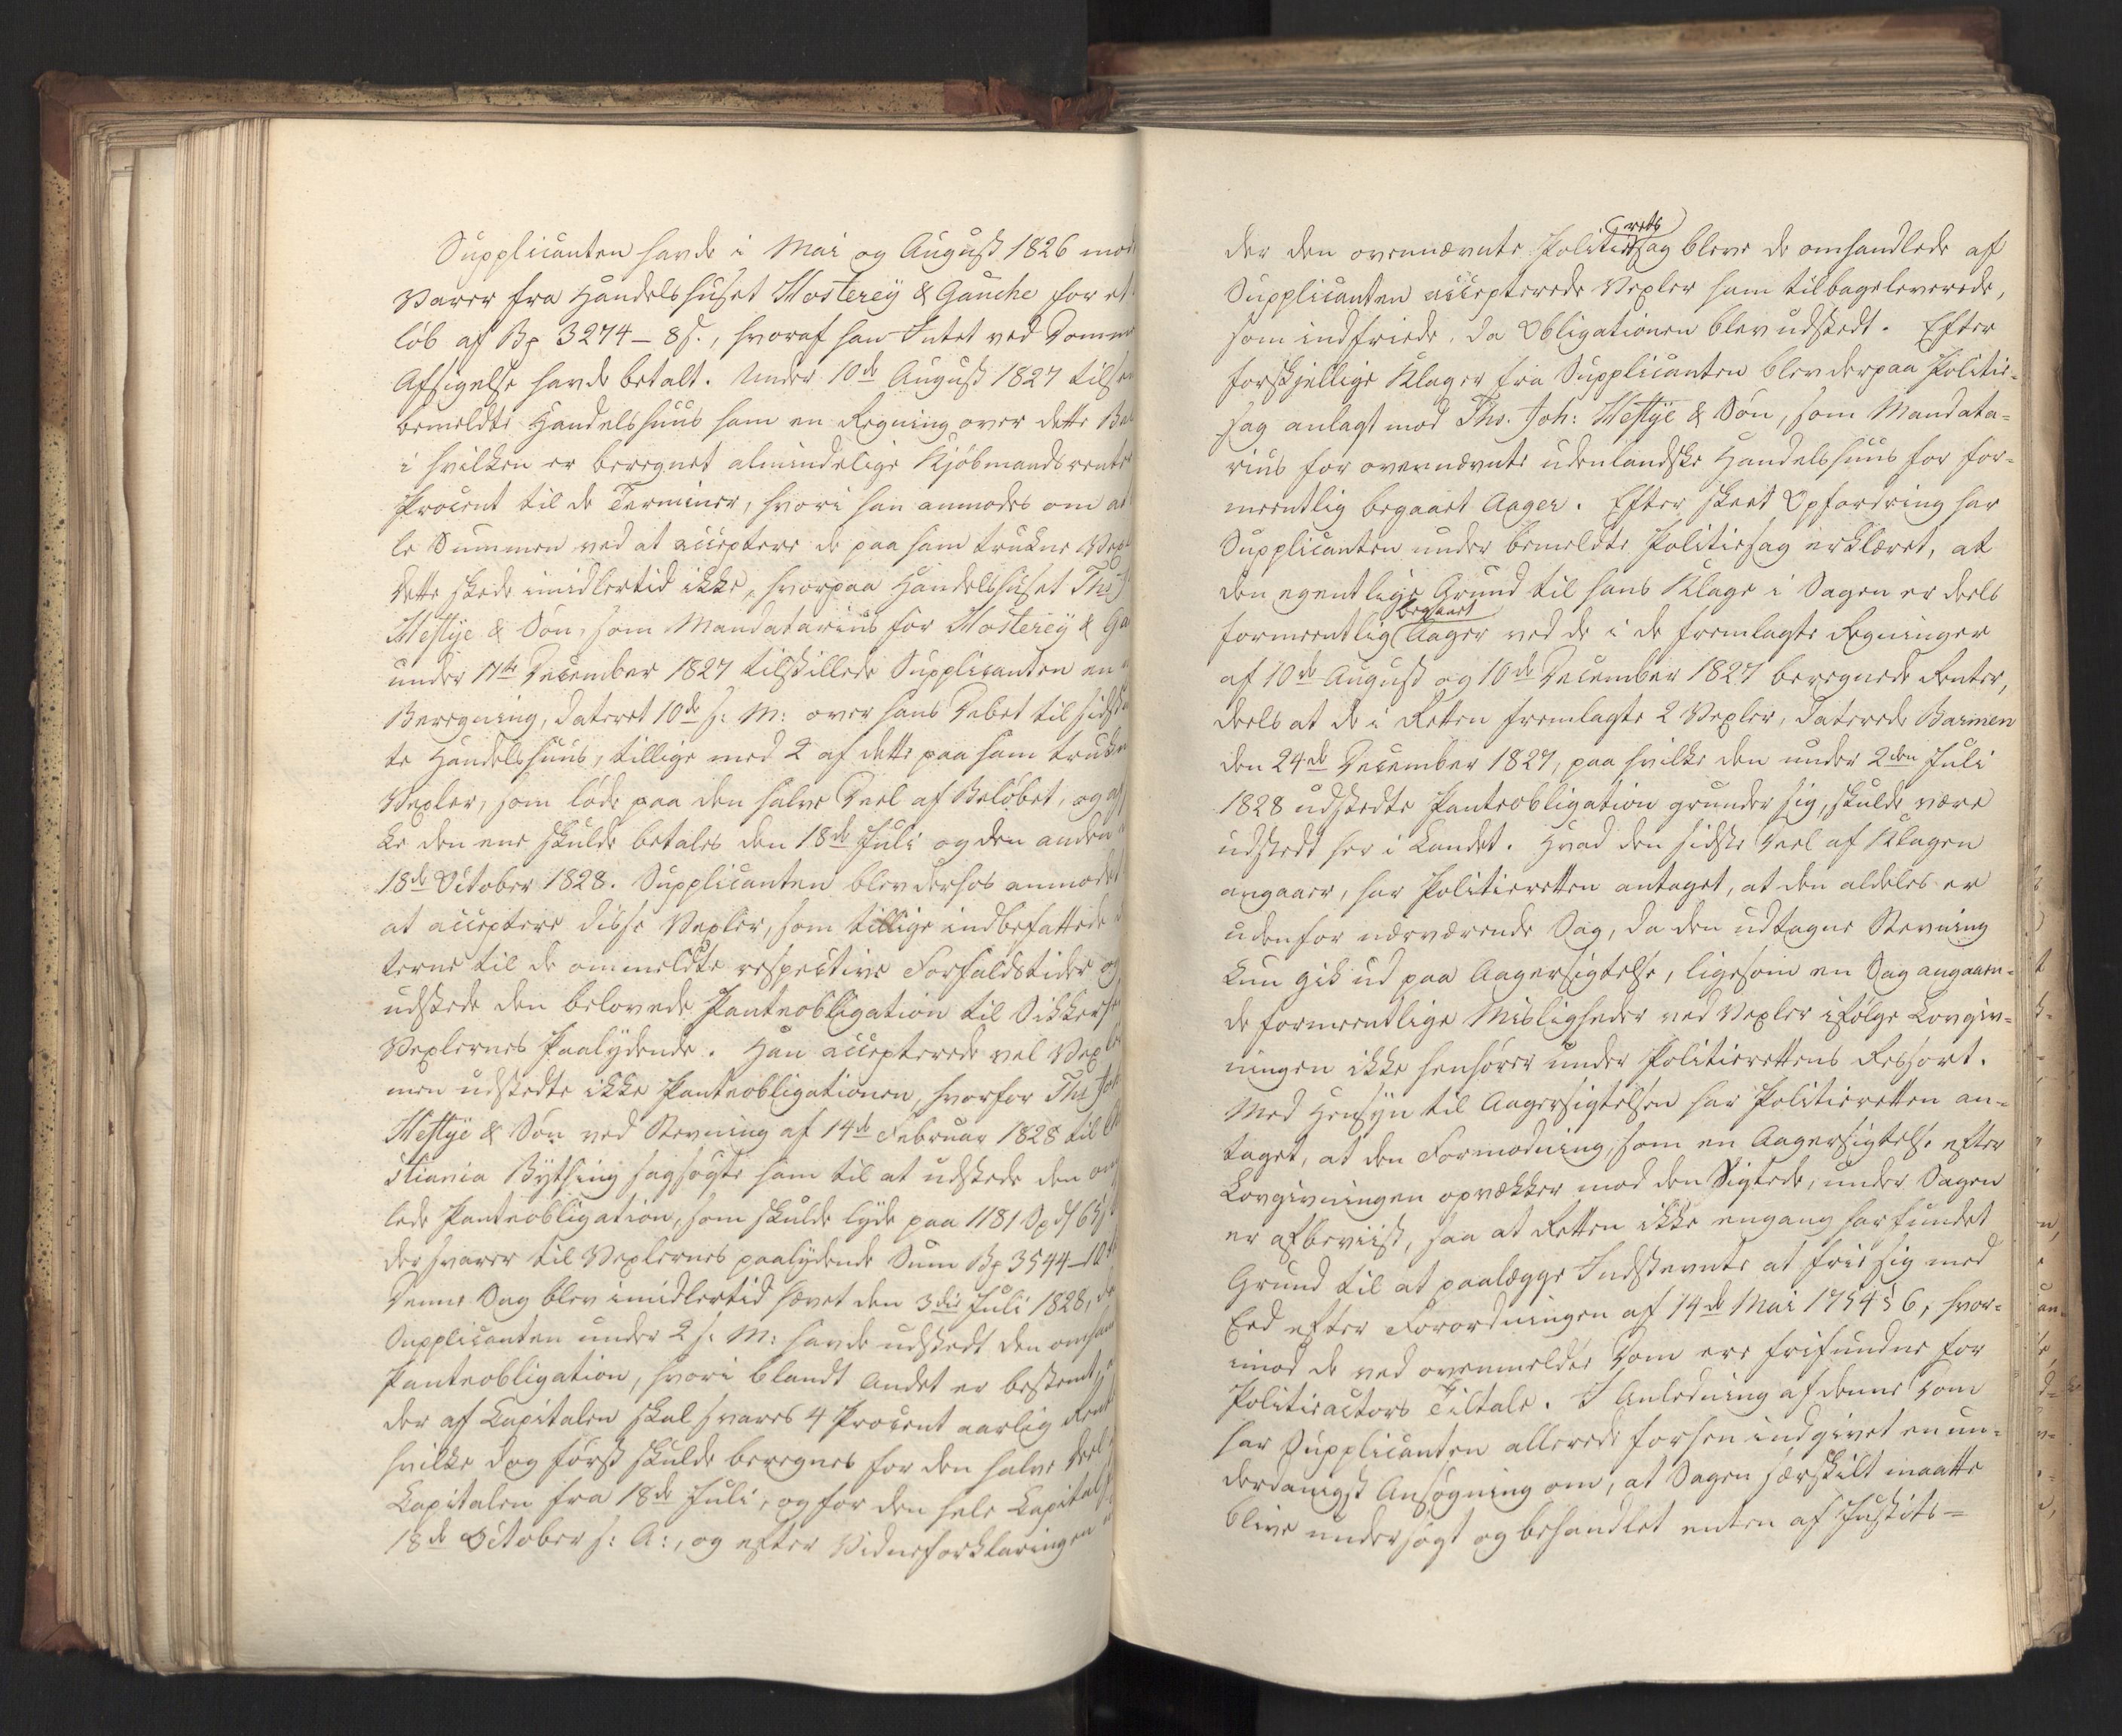 Supplicanten havde i Mai og August 1826 mod
Varer fra Handelshuset Mosterey & Gauche for et
løb af Bp 3274 - 8 s., hvoraf han Intet ved Dommens
Afsigelse havde betalt. Under 10de August 1827 tilsen
bemeldte Handelshuus ham en Regning over dette Bel
i hvilken er beregnet almindelige Kjøbmandsrenter
Procent til de Terminer, hvori han anmodes om at
le Summen ved at acceptere de paa ham trukne Vex
Dette skede imidlertid ikke, hvorpaa Handelshuset Ths J
Heftye & Søn, som Mandatarius for Mosterey & Ga
under 17de December 1827 tilstillede Supplicanten en
Beregning, dateret 10de s: M: over hans Debet til sidst
te Handelshuus, tillige med 2 af dette paa ham trukn
Vexler, som løde paa den halve Deel af Beløbet, og af
ke den ene skulde betales den 18de Juli og den anden
18de October 1828. Supplicanten blev derhos anmodet
at acceptere disse Vexler, som tillige indbefattede
terne til de ommeldte respective Forfaldstider og
udstede den belovede Panteobligation til Sikkerhe
Vexlernes Paalydende. Han accepterede vel Vexle
men udstedte ikke Panteobligationen, hvorfor Ths Joh
Heftye & Søn ved Stevning af 14de Februar 1828 til Ch
stiania Bything sagsøgte ham til at udstede den om
lede Panteobligation, som skulde lyde paa 1181 Spd 65
der svarer til Vexlernes paalydende Sum Bp 3544 - 10
Denne Sag blev imidlertid hævet den 3die Juli 1828, da
Supplicanten under 2 s: M: havde udstedt den omhan
Panteobligation, hvori blandt Andet er bestemt,
der af Capitalen skal svares 4 Procent aarlig Rent
hvilke dog først skulde beregnes for den halve Deel
Capitalen fra 18de Juli, og for den hele Capital
18de October s: A:, og efter Vidneforklaringen
der den ovennævnte Politieretssag bleve de omhandlede af
Supplicanten accepterede Vexler ham tilbageleverede,
som indfriede, da Obligationen blev udstedt. Efter
forskjellige Klager fra Supplicanten blev derpaa Politie-
sag anlagt mod Ths. Joh: Heftye & Søn, som Mandata-
rius for ovennævnte udenlandske Handelshuus for for-
meentlig begaaet Aager. Efter skeet Opfordring har
Supplicanten under bemeldte Politiesag erklæret, at
den egentlige Grund til hans Klage i Sagen er deels
formeentlig begaaet Aager ved de i de fremlagte Regninger
af 10de August og 10de December 1827 beregnede Renter,
deels at de i Retten fremlagte 2 Vexler, daterede Barmen
den 24de December 1827, paa hvilke den under 2den Juli
1828 udstedte Panteobligation grunder sig, skulde være
udstedt her i Landet. Hvad den sidste Deel af Klagen
angaaer, har Politieretten antaget, at den aldeles er
udenfor nærværende Sag, da den udtagne Stevning
kun gik ud paa Aagersigtelse, ligesom en Sag angaaen-
de formeentlige Misligheder ved Vexler ifølge Lovgiv-
ningen ikke henhører under Politierettens Ressort.
Med Hensyn til Aagersigtelsen har Politieretten an-
taget, at den Formodning, som en Aagersigtelse efter
Lovgivningen opvækker mod den Sigtede, under Sagen
er afbeviist, saa at Retten ikke engang har fundet
Grund til at paalægge Indstevnte at frie sig med
Eed efter Forordningen af 14de Mai 1754 § 6, hvor-
imod de ved ovenmeldte Dom ere frifundne for
Politieactors Tiltale. I Anledning af denne Dom
har Supplicanten allerede forhen indgivet en un-
derdanigst Ansøgning om, at Sagen særskilt maatte
blive undersøgt og behandlet enten af Justits-